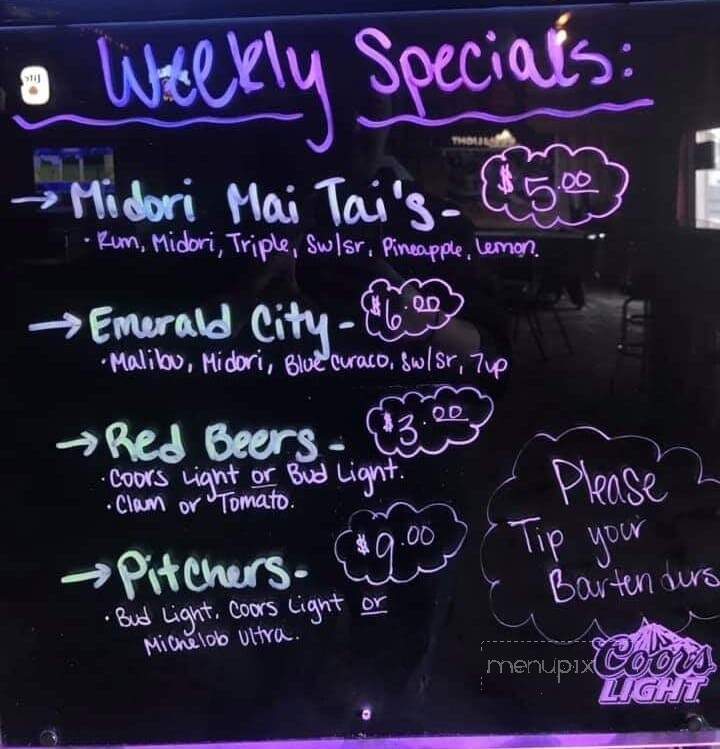 Weekly Specials:
THOU
→ Midori Mai Tai's- $5.00
· Rum, Midori, Triple, Sw/sr, Pineapple, Lemon.
→ Emerald City- $6.00
· Malibu, Midori, Blue curaco, Sw/Sr, 7up
→ Red Beers- $3.00
· Coors Light or Bud Light.
· Clam or Tomato.
→ Pitchers- $9.00
· Bud Light, Coors Light or
Michelob Ultra.
Please
Tip your
Bartenders
menupix
Coors
LIGHT